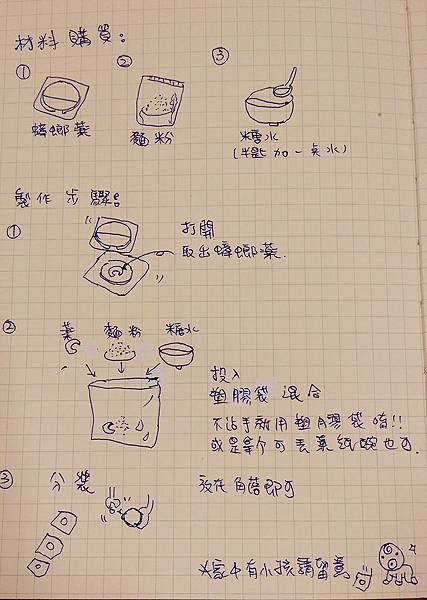 材料購買：
① ② ③
蟑螂藥 麵粉 糖水
(半匙加一点水)
製作步驟：
①
打開
取出蟑螂藥.
②
藥 麵粉 糖水
投入
塑膠袋混合
不沾手就用塑膠袋唷!!
或是拿个可丟棄紙碗也可.
③ 分裝
放在角落即可
家中有小孩請留意